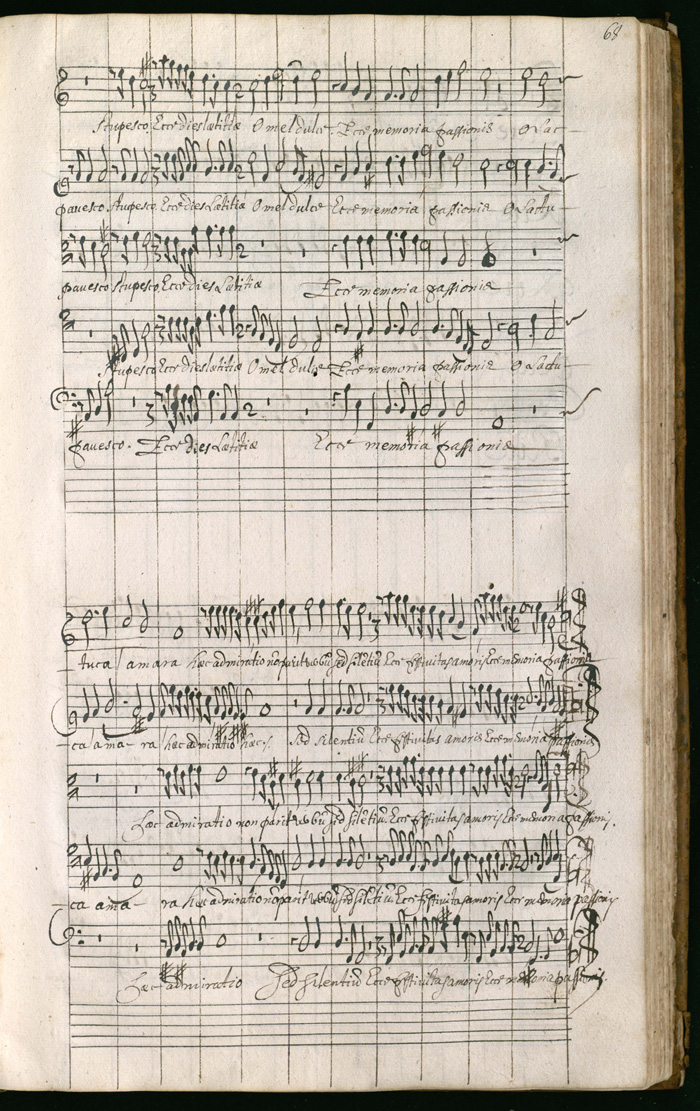 68
Stupesco Ecce dies lætitiæ O mel dulce. Ecce memoria passionis O lac
pavesco Stupesco. Ecce dies Lætitiæ O mel dulce Ecce memoria passionis O lactu
pavesco Stupesco, Ecce dies Lætitiæ Ecce memoria passionis
Stupesco Ecce dies lætitiæ O mel dulce Ecce memoria passionis O lactu
pavesco. Ecce dies Lætitiæ Ecce memoria passionis
tuca amara hæc admiratio parit sed Ecce festivitas amoris Ecce memoria passionis
ca ama ra hæc admiratio hæc Sed silentiũ Ecce festivitas amoris Ecce memoria passionis
Hæc admiratio non parit sed Ecce festivitas amoris Ecce memoria passionis.
ca ama ra hæc admiratio parit Ecce festivitas amoris Ecce memoria passionis
Hæc admiratio Sed silentiũ Ecce festivitas amoris Ecce memoria passionis.